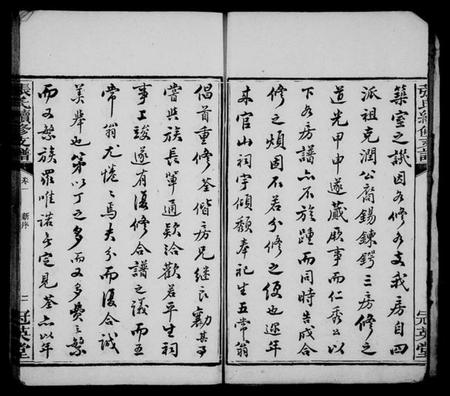 築室之誤因各修各支我房自四
派祖克潤公裔錫鍊鍔三房修之
道光甲申遂蕆厥事而仁秀公以
下各房譜亦不旋踵而同時告成合
修之煩固不若分修之便也近年
來官山祠宇傾頹奉祀生五常翁
倡首重修荃偕房兄繼良勷其事
嘗與族長輩通欵洽歡若平生祠
事工竣遂有復修合譜之議而五
常翁尤惓惓焉夫分而復合誠
美舉也第以丁之多而又多費之繁
而又繁族羅唯諾無定見荃亦以年
張氏續修支譜
卷一
新序
二
冠英堂
張氏續修支譜
冠英堂